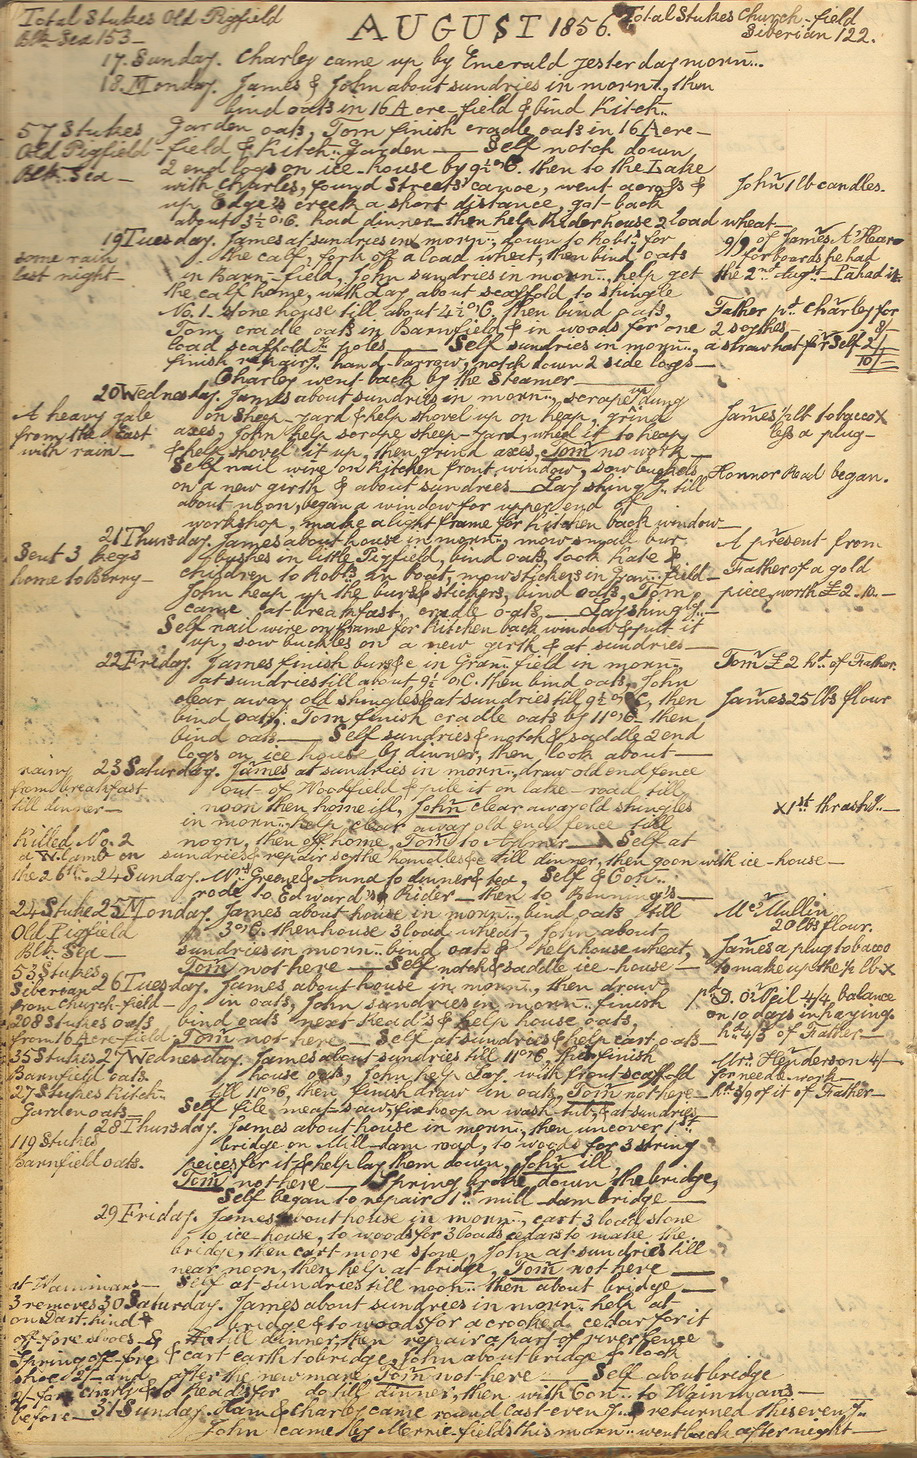 Total Stukes Old Pigfield
Blk. Sea 153 —
AUGUST 1856.
Total Stukes Church-field
Siberian 122.
17. Sunday. Charley came up by Emerald yesterday morn..
18. Monday. James & John about sundries in morn.., then
bind oats in 16 Acre-field & bind Kitch..
57 Stukes
Old Pigfield -
Blk. Sea —
Garden oats, Tom finish cradle oats in 16 Acre-
field & Kitch.. Garden — Self notch down
2 end logs on ice-house by 9½ o'C. then to the Lake
with Charles, found Streets' canoe, went across &
up Edge's creek a short distance, got back
about 3½ o'C. had dinner — then help Rider house 2 load wheat —
John 1 lb candles.
19 Tuesday. James at sundries in morn.., down to Robt.s for
the calf, fork off a load wheat, then bind oats
some rain
last night —
in Barn-field, John sundries in morn.. help get
the calf home, with Day about scaffold to shingle
No. 1. Stone house till about 4½ o'C. then bind oats,
Tom cradle oats in Barnfield & in woods for one
load scaffold poles — Self sundries in morn..,
finish repairg. hand-barrow, notch down 2 side logs —
Charley went back by the Steamer —
9/9 of James A'Hearn
for boards he had
the 2nd Augst — I had it
Father pd. Charley for
2 scythes — 8/-
a straw hat for Self 2/-
10/-
20 Wednesday. James about sundries in morn.., scrape up dung
on Sheep-yard & help shovel up on heap, grind
A heavy gale
from the East
with rain —
axes, John help scrape sheep-yard, wheel it to heap
& help shovel it up, then grind axes, Tom no work —
Self nail wire on Kitchen front window, sow buckels
on a new girth & about sundries — Lay shingg. till
about noon, began a window for upper end of
workshop, make a light frame for Kitchen back window —
James ½ lb tobacco X
less a plug —
Honnor Read began.
21 Thursday. James about house in morn.., mow small bur
bushes in little Pigfield, bind oats, took Kate &
Sent 3 kegs
home to Berry —
children to Robts. in boat, mow stickers in Gran.. field —
John heap up the burs & stickers, bind oats, Tom
came at breakfast, cradle oats — Lay shingg. —
Self nail wire on frame for Kitchen back window & put it
up, sow buckles on a new girth & at sundries —
A present from
Father of a gold
piece, worth £2.10. —
22 Friday. James finish burs &c in Gran.. field in morn..
at sundries till about 9½ o'C. then bind oats, John
clear away old shingles & at sundries till 9½ o'C, then
bind oats. Tom finish cradle oats by 11 o'C. then
bind oats — Self sundries & notch & saddle 2 end
logs on ice house by dinner, then look about —
Tom £2 ht. of Father.
James 25 lbs flour
23 Saturday. James at sundries in morn.., draw old end fence
rainy
from breakfast
till dinner —
out of Woodfield & pile it on lake-road till
noon then home ill, John clear away old shingles
in morn.., help clear away old end fence till
noon, then off home, Tom to Aylmer — Self at
sundries & repair scythe handles &c till dinner, then go on with ice-house —
X 1st thrashg. —
Killed No. 2
a W. lamb on
the 26th.
24 Sunday. Mrs Greene & Anna to dinner & tea, Self & Con..
rode to Edward's, Rider — then to Benning's —
24 Stukes
Old Pigfield
Blk. Sea —
25 Monday. James about house in morn.., bind oats till
3 o'C. then house 3 load wheat, John about
sundries in morn.. bind oats & help house wheat,
Tom not here — Self notch & saddle ice-house —
McMullin
20 lbs flour.
James a plug tobacco
to make up the ½ lb X
53 Stukes
Siberian
from Church-field —
26 Tuesday. James about house in morn.., then draw
in oats, John sundries in morn.. finish
208 Stukes oats
from 16 Acre-field
bind oats next Read's & help house oats,
Tom not here — Self at sundries & help cart oats —
pd. D. O'Neil 4/4 balance
on 10 days in hayings
ht. 4/3 of Father —
35 Stukes
Barnfield oats
27 Wednesday. James about sundries till 11 o'C, then finish
house oats, John help Lay with front scaffold
27 Stukes Kitch..
Garden oats —
till 11 o'C, then finish draw in oats, Tom not here —
Self file meat-saw, fix hoop on wash-tub, & at sundries
Mrs. Henderson 4/-
for needle work
ht. 3/9 of it of Father —
28 Thursday. James about house in morn.., then uncover 1st
119 Stukes
Barnfield oats.
bridge on Mill-dam road, to woods for 3 string
peices for it & help lay them down, John ill
Tom not here — Spring broke down the bridge,
Self began to repair 1st mill-dam bridge —
29 Friday. James about house in morn.., cart 3 load stone
to ice-house, to woods for 3 loads cedars to make the
bridge, then cart more stone, John at sundries till
near noon, then help at bridge, Tom not here —
Self at sundries till noon.. then about bridge —
at Wainmans —
3 removes
on Dart. hind &
off-fore shoes &
Spring off-fore
shoe 2/- and
before —
30 Saturday. James about sundries in morn.. help at
bridge & to woods for a crooked cedar for it
till dinner, then repair a part of river fence
& cart earth to bridge, John about bridge & look
after the new mare, Tom not here — Self about bridge
& to Read's for do till dinner, then with Con.. to Wainmans —
31 Sunday. Ham & Charley came round last eveng. & returned this eveng.
John came by Merrie-fields this morn.. went back after night —